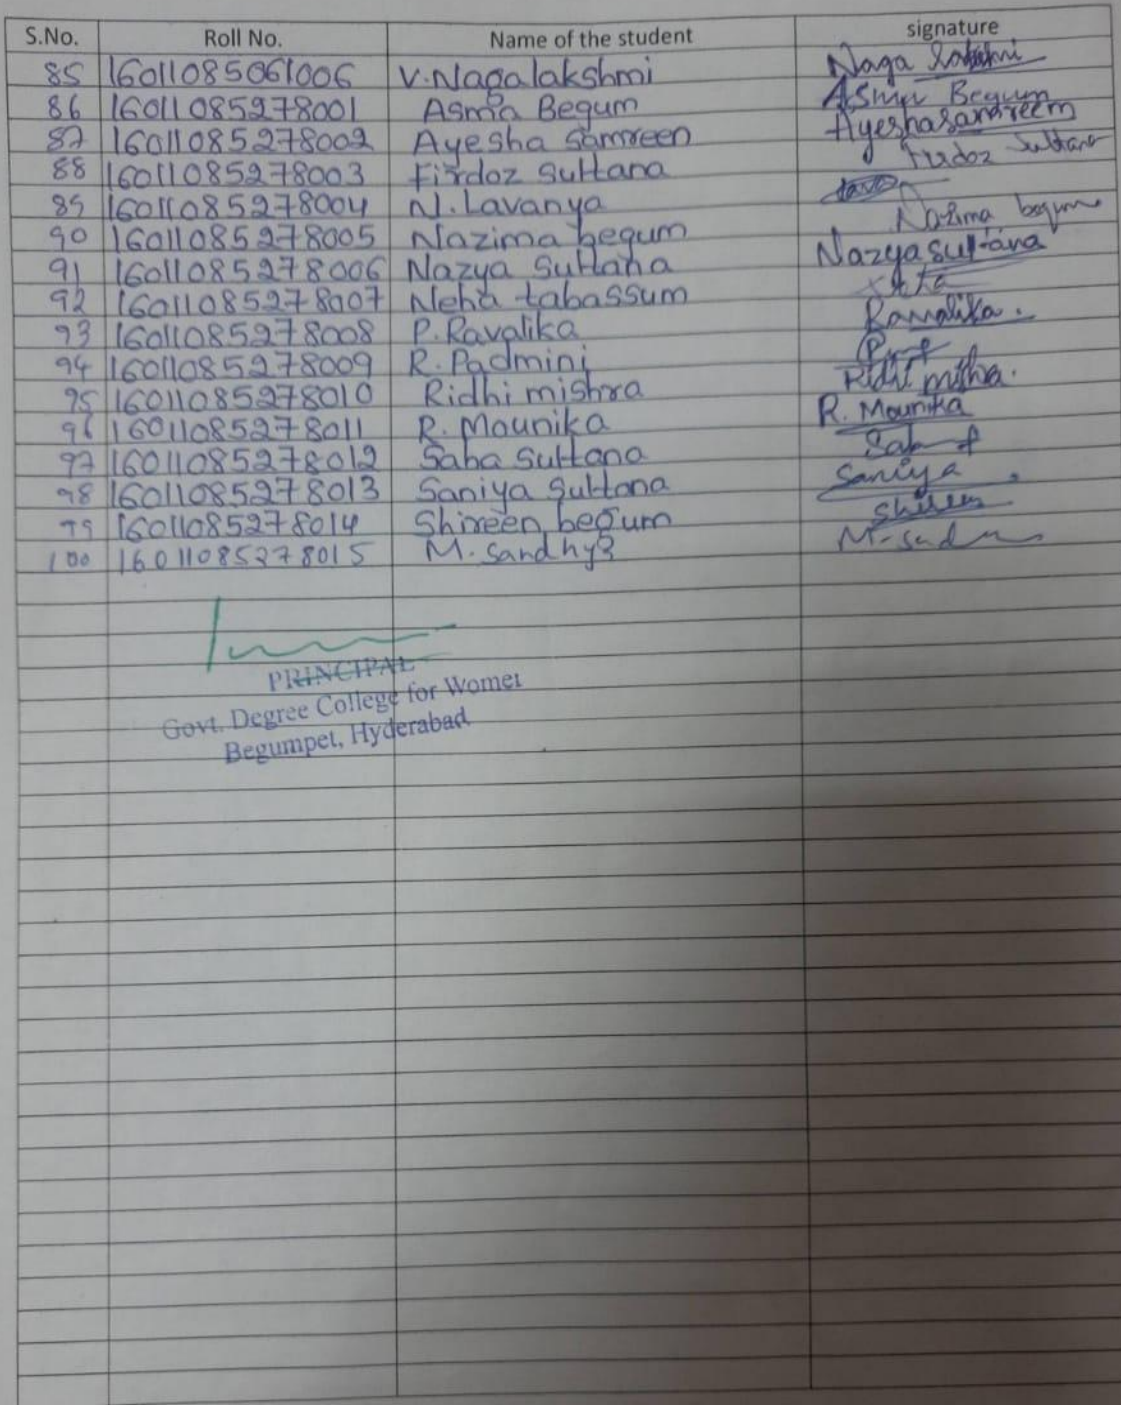 S.No. Roll No. Name of the student signature
85 16011085061006 V.Nagalakshmi Naga
86 16011085278001 Asma Begum Asma Begum
87 16011085278002 Ayesha Samreen Ayesha Samreem
88 16011085278003 Firdoz Sultana Firdoz Sultana
89 16011085278004 N.Lavanya
90 16011085278005 Nazima begum Nazima begum
91 16011085278006 Nazya Sultana Nazya sultana
92 16011085278007 Neha tabassum
93 16011085278008 P.Ravalika Ravalika.
94 16011085278009 R.Padmini
95 16011085278010 Ridhi mishra Ridhi
96 16011085278011 R. Mounika R. Mounika
97 16011085278012 Saba Sultana
98 16011085278013 Saniya Sultana Saniya
99 16011085278014 Shireen begum
100 16011085278015 M.Sandhya
PRINCIPAL
Govt. Degree College for Women
Begumpet, Hyderabad